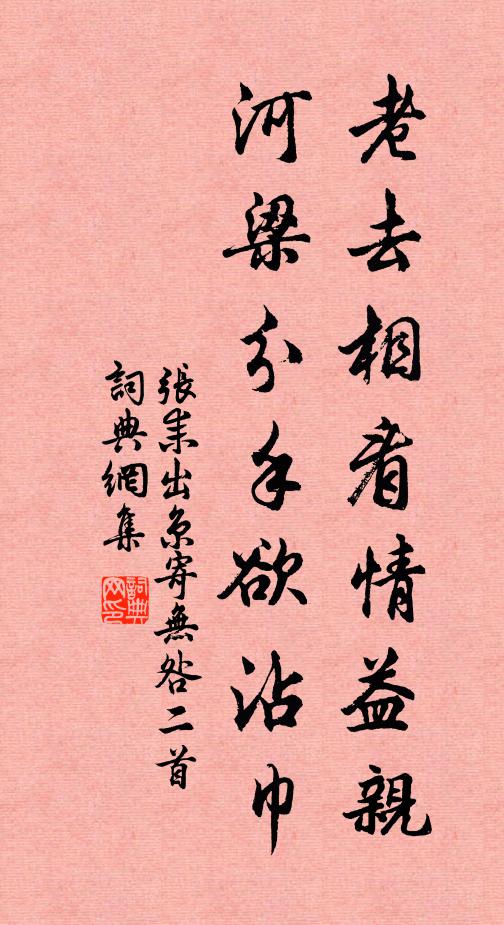 老去相看情益親
河梁分手欲沾巾
張耒出京寄無咎二首
詞典網集
詞典網印